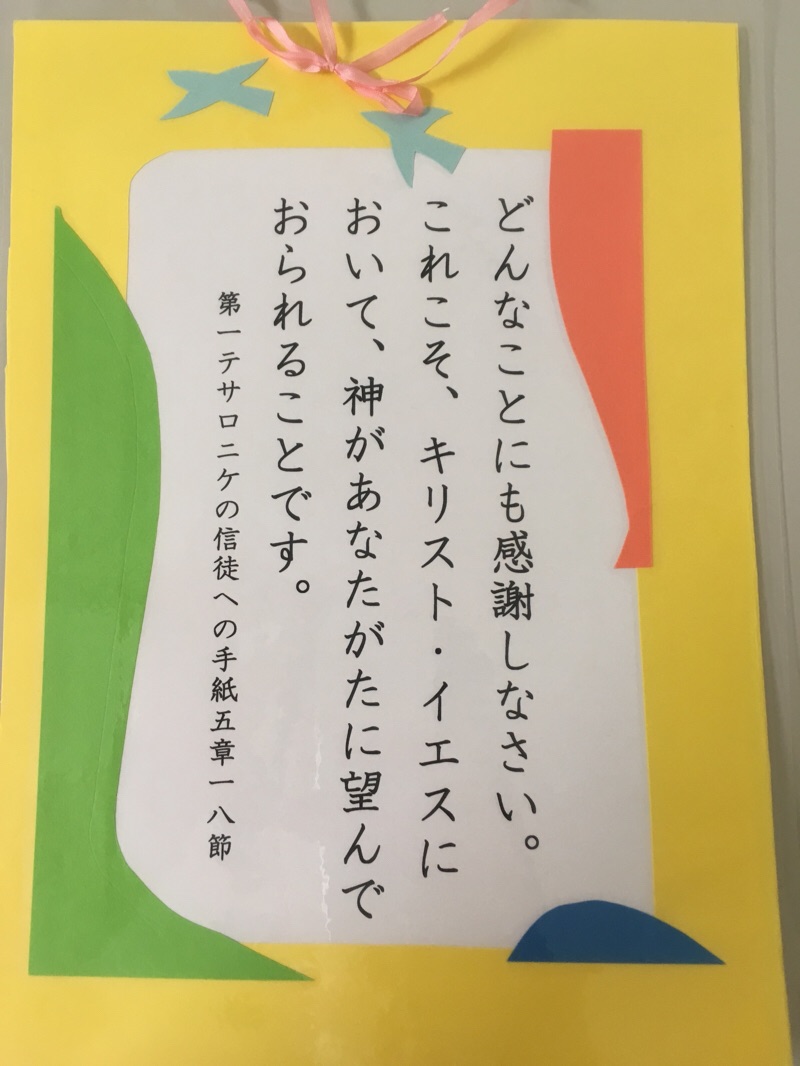 どんなことにも感謝しなさい。
これこそ、キリスト・イエスに
おいて、神があなたがたに望んで
おられることです。
第一テサロニケの信徒への手紙五章一八節